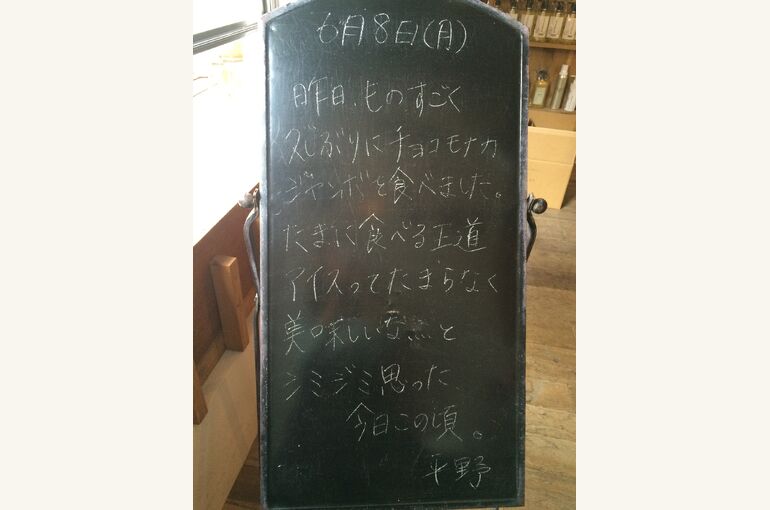 6月8日(月)
昨日、ものすごく
久しぶりにチョコモナカ
ジャンボを食べました。
たまに食べる王道
アイスってたまらなく
美味しいな…と
シミジミ思った、
今日この頃。
平野